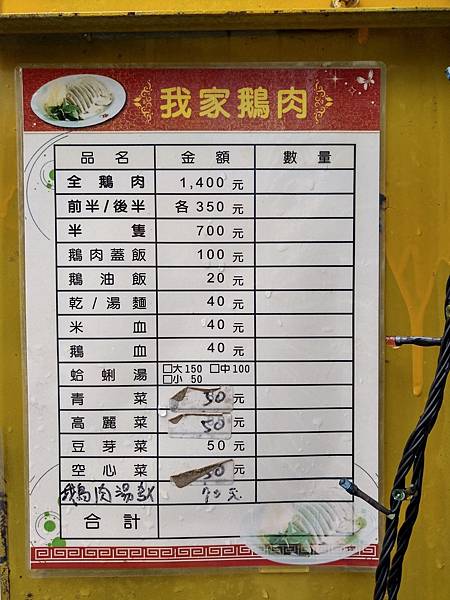 我家鵝肉
品名 金額 數量
全鵝肉 1,400元
前半/後半 各350元
半隻 700元
鵝肉蓋飯 100元
鵝油飯 20元
乾/湯麵 40元
米血 40元
鵝血 40元
蛤蜊湯 □大150 □中100
□小 50
青菜 50元
高麗菜 50元
豆芽菜 50元
空心菜 50元
鵝肉湯 元
合計